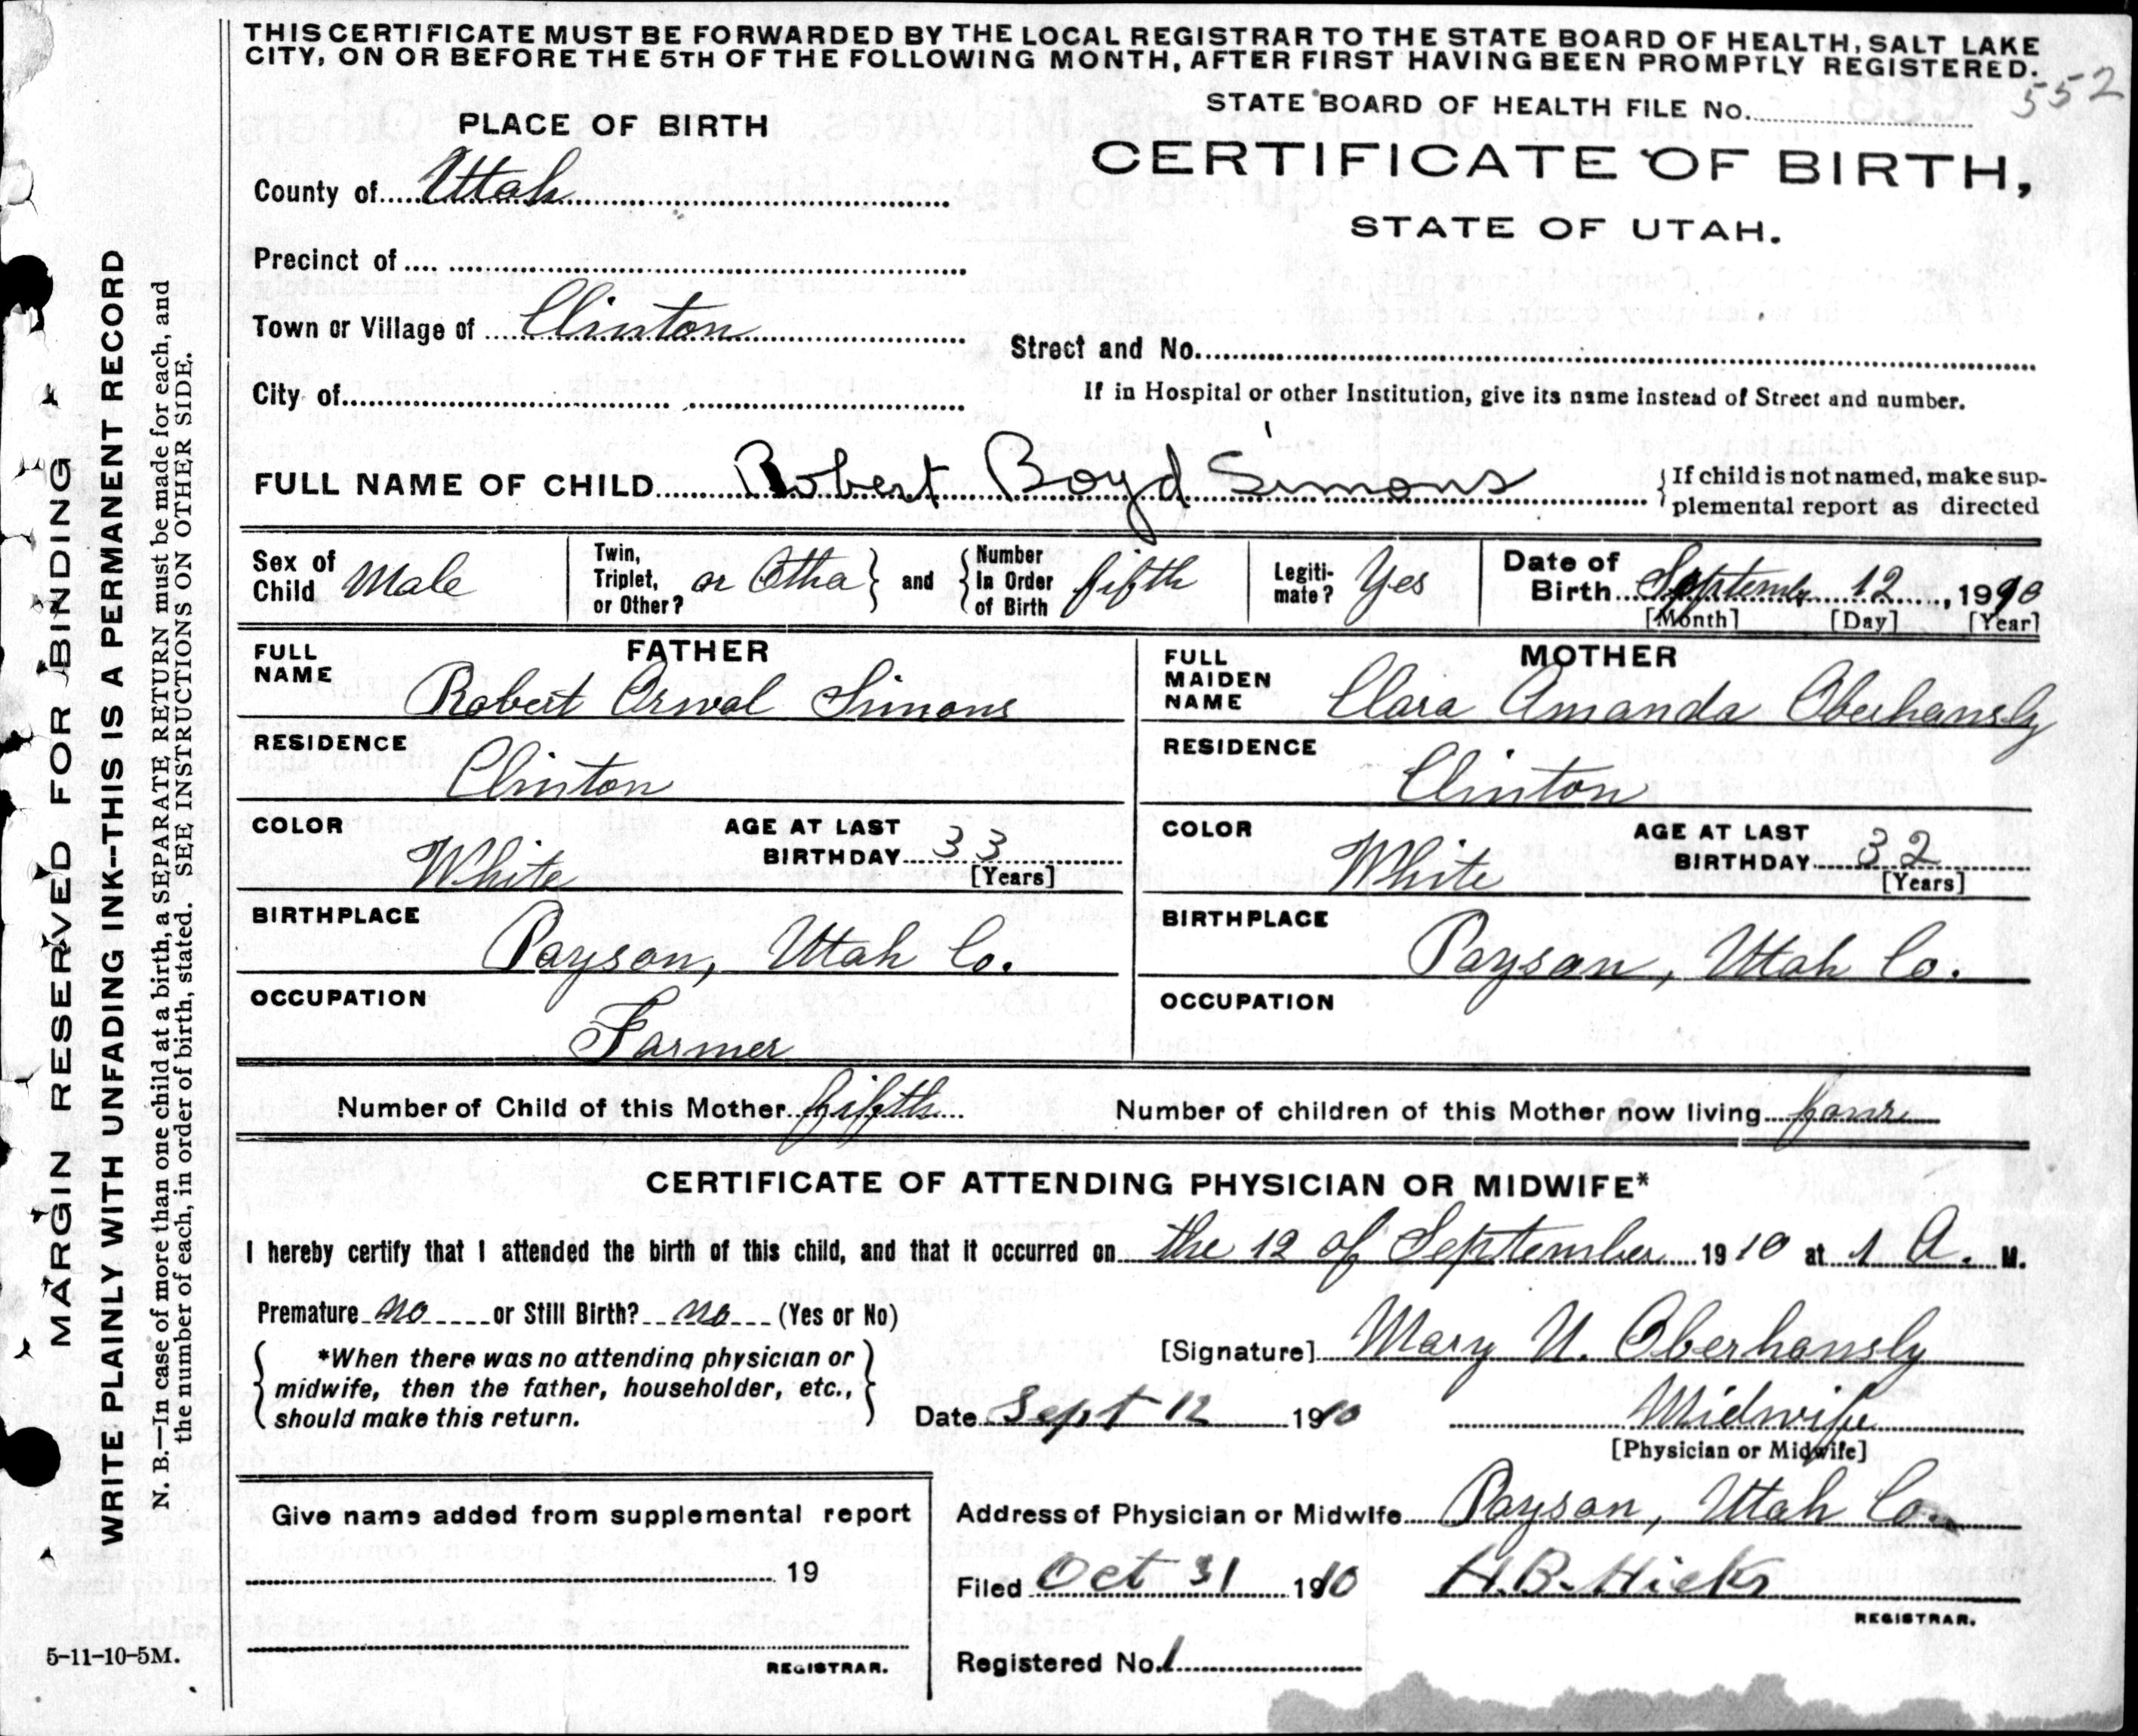 THIS CERTIFICATE MUST BE FORWARDED BY THE LOCAL REGISTRAR TO THE STATE BOARD OF HEALTH, SALT LAKE
CITY, ON OR BEFORE THE 5TH OF THE FOLLOWING MONTH, AFTER FIRST HAVING BEEN PROMPTLY REGISTERED.
552
STATE BOARD OF HEALTH FILE No.
PLACE OF BIRTH
CERTIFICATE OF BIRTH,
STATE OF UTAH.
County of Utah
Precinct of
Town or Village of Clinton
Street and No.
City of
If in Hospital or other Institution, give its name instead of Street and number.
FULL NAME OF CHILD Robert Boyd Simons
If child is not named, make sup-
plemental report as directed
Sex of Child Male
Twin, Triplet, or Other? or Otha
and
Number In Order of Birth fifth
Legiti-mate? Yes
Date of Birth September 12, 1910
[Month] [Day] [Year]
FATHER
FULL NAME Robert Orwal Simons
RESIDENCE Clinton
COLOR White
AGE AT LAST BIRTHDAY 33
[Years]
BIRTHPLACE Payson, Utah Co.
OCCUPATION Farmer
MOTHER
FULL MAIDEN NAME Clara Amanda Oberhansly
RESIDENCE Clinton
COLOR White
AGE AT LAST BIRTHDAY 32
[Years]
BIRTHPLACE Payson, Utah Co.
OCCUPATION
Number of Child of this Mother fifth
Number of children of this Mother now living four
CERTIFICATE OF ATTENDING PHYSICIAN OR MIDWIFE*
I hereby certify that I attended the birth of this child, and that it occurred on the 12 of September 1910 at 1 A. M.
Premature no or Still Birth? no (Yes or No)
*When there was no attending physician or
midwife, then the father, householder, etc.,
should make this return.
[Signature] Mary U. Oberhansly
Date Sept 12 1910
Midwife
[Physician or Midwife]
Give name added from supplemental report
19
REGISTRAR.
Address of Physician or Midwife Payson, Utah Co.
Filed Oct 31 1910 H.B. Hicks
REGISTRAR.
Registered No. 1
5-11-10-5M.
MARGIN RESERVED FOR BINDING
WRITE PLAINLY WITH UNFADING INK--THIS IS A PERMANENT RECORD
N. B.—In case of more than one child at a birth, a SEPARATE RETURN must be made for each, and
the number of each, in order of birth, stated. SEE INSTRUCTIONS ON OTHER SIDE.